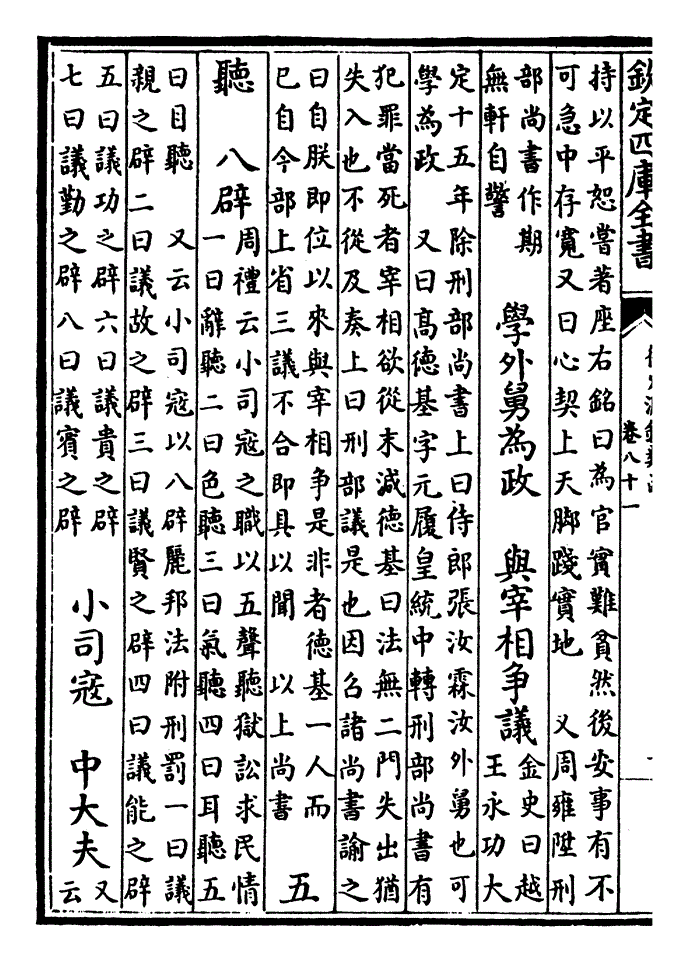 欽定四庫全書
卷八十一
持以平恕嘗著座右銘曰為官實難貧然後安事有不
可急中存寬又曰心契上天脚踐實地 又周雍陞刑
部尚書作期
無軒自警
學外舅為政 與宰相争議
金史曰越
王永功大
定十五年除刑部尚書上曰侍郎張汝霖汝外舅也可
學為政 又曰高德基字元履皇統中轉刑部尚書有
犯罪當死者宰相欲從末減德基曰法無二門失出猶
失入也不從及奏上曰刑部議是也因召諸尚書諭之
曰自朕即位以來與宰相争是非者德基一人而
已自今部上省三議不合即具以聞 以上尚書
五
聽 八辟
周禮云小司寇之職以五聲聽獄訟求民情
一曰辭聽二曰色聽三曰氣聽四曰耳聽五
曰目聽 又云小司寇以八辟麗邦法附刑罰一曰議
親之辟二曰議故之辟三曰議賢之辟四曰議能之辟
五曰議功之辟六曰議貴之辟
七曰議勤之辟八曰議賓之辟
小司寇 中大夫
又
云